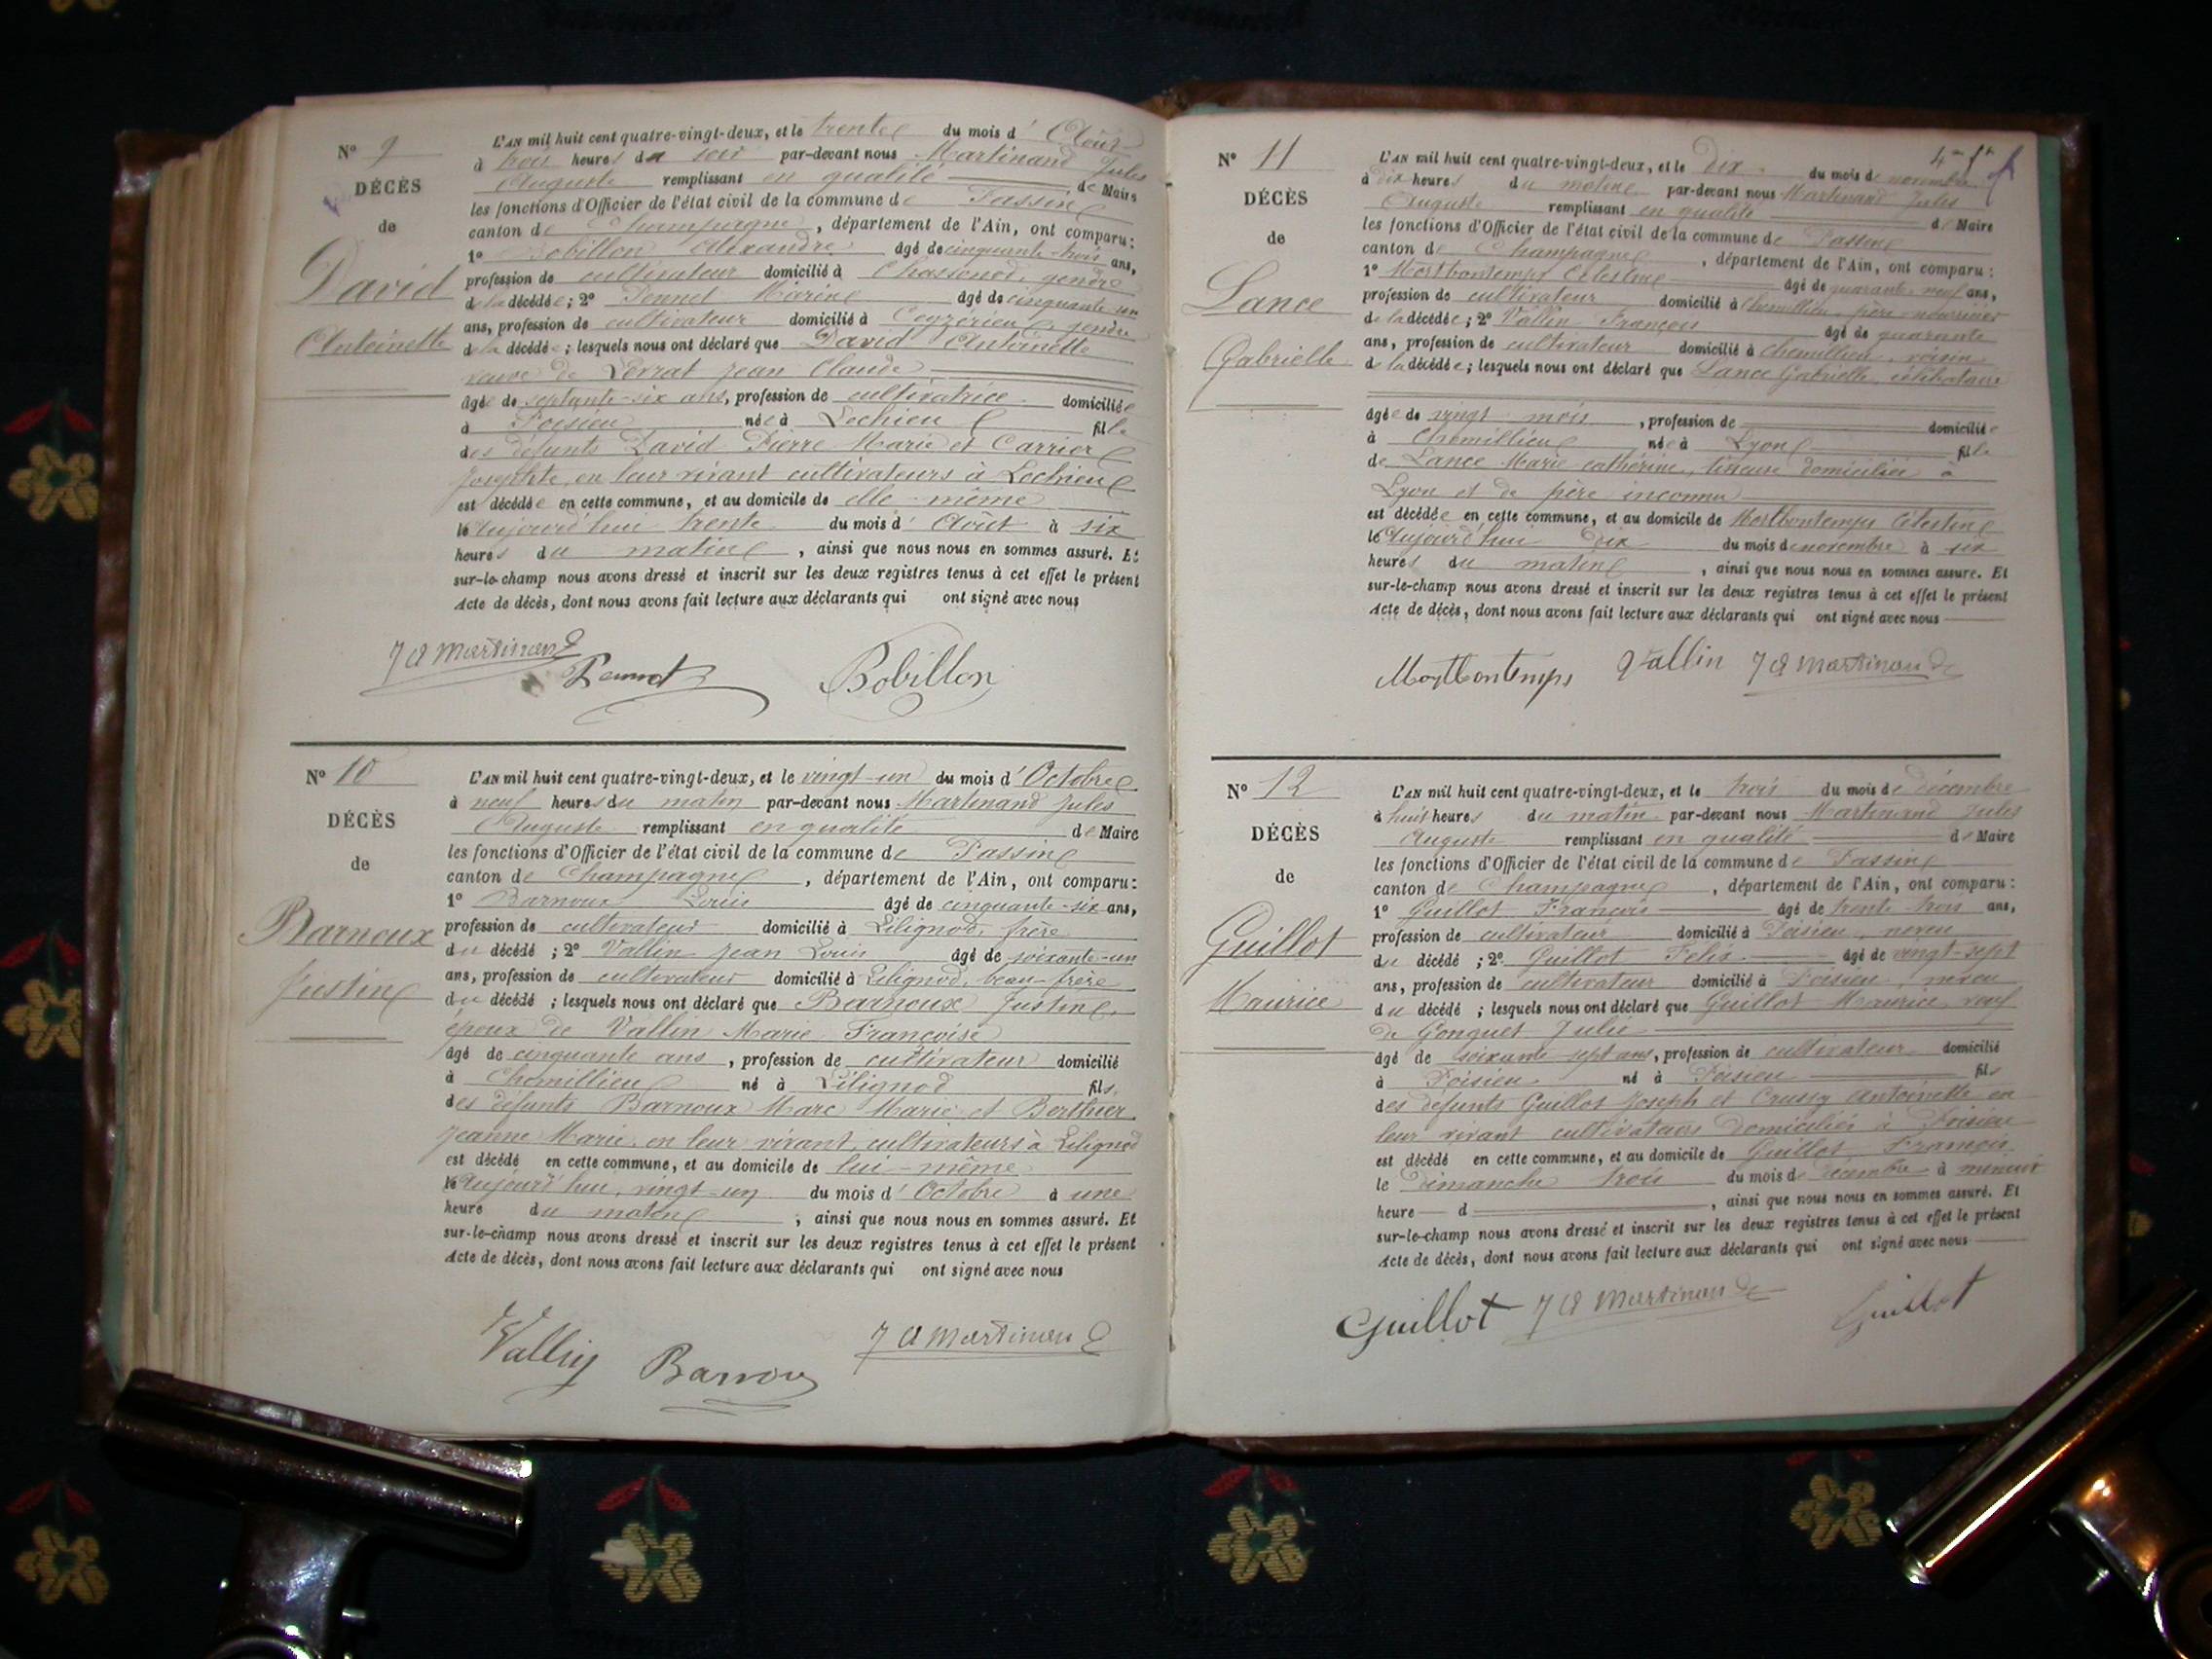 N° 9
DÉCÈS
de
David
Antoinette
L'AN mil huit cent quatre-vingt-deux, et le trente du mois d' Août
à trois heures du soir par-devant nous Martinand Jules
Auguste remplissant en qualité de Maire
les fonctions d'Officier de l'état civil de la commune de Passin
canton de Champagne, département de l'Ain, ont comparu:
1° Bobillon Alexandre âgé de cinquante-trois ans,
profession de cultivateur domicilié à gendre
de la décédée; 2° Pennet âgé de cinquante un
ans, profession de cultivateur domicilié à Ceyzérieu gendre
de la décédée; lesquels nous ont déclaré que David Antoinette
veuve de Levrat Jean Claude
âgée de septante-six ans, profession de cultivatrice domiciliée
à Poisieu née à Lochieu fille
des défunts David Pierre Marie et Carrier
Josephte, en leur vivant cultivateurs à Lochieu
est décédée en cette commune, et au domicile de elle-même
le Aujourd'hui trente du mois d' Août à six
heures du matin, ainsi que nous nous en sommes assuré. Et
sur-le-champ nous avons dressé et inscrit sur les deux registres tenus à cet effet le présent
Acte de décès, dont nous avons fait lecture aux déclarants qui ont signé avec nous
J A Martinand Pennet Bobillon
N° 10
DÉCÈS
de
Barnoux
Justin
L'AN mil huit cent quatre-vingt-deux, et le vingt-un du mois d' Octobre
à neuf heures du matin par-devant nous Martinand Jules
Auguste remplissant en qualité de Maire
les fonctions d'Officier de l'état civil de la commune de Passin
canton de Champagne, département de l'Ain, ont comparu:
1° Barnoux Louis âgé de cinquante-six ans,
profession de cultivateur domicilié à Lilignod, frère
du décédé; 2° Vallin Jean Louis âgé de soixante-un
ans, profession de cultivateur domicilié à Lilignod, beau-frère
du décédé; lesquels nous ont déclaré que Barnoux Justin,
époux de Vallin Marie Françoise
âgé de cinquante ans, profession de cultivateur domicilié
à Chemillieu né à Lilignod fils
des défunts Barnoux Marc Marie et Berthier
Jeanne Marie, en leur vivant, cultivateurs à Lilignod
est décédé en cette commune, et au domicile de lui-même
le Aujourd'hui, vingt-un du mois d' Octobre à une
heure du matin, ainsi que nous nous en sommes assuré. Et
sur-le-champ nous avons dressé et inscrit sur les deux registres tenus à cet effet le présent
Acte de décès, dont nous avons fait lecture aux déclarants qui ont signé avec nous
Vallin Barnoux J A Martinand
N° 11
DÉCÈS
de
Lance
Gabrielle
L'AN mil huit cent quatre-vingt-deux, et le dix du mois de novembre
à dix heures du matin par-devant nous Martinand Jules
Auguste remplissant en qualité de Maire
les fonctions d'Officier de l'état civil de la commune de Passin
canton de Champagne, département de l'Ain, ont comparu:
1° Montbontemps Célestin âgé de quarante-neuf ans,
profession de cultivateur domicilié à Chemillieu, père nourricier
de la décédée; 2° Vallin François âgé de quarante
ans, profession de cultivateur domicilié à Chemillieu, voisin
de la décédée; lesquels nous ont déclaré que Lance Gabrielle, célibataire
âgée de vingt mois, profession de domiciliée
à Chemillieu née à Lyon fille
de Lance Marie cathérine, tisseuse domiciliée à
Lyon et de père inconnu
est décédée en cette commune, et au domicile de Montbontemps Célestin
le Aujourd'hui dix du mois de novembre à six
heures du matin, ainsi que nous nous en sommes assuré. Et
sur-le-champ nous avons dressé et inscrit sur les deux registres tenus à cet effet le présent
Acte de décès, dont nous avons fait lecture aux déclarants qui ont signé avec nous
Montbontemps Vallin J A Martinand
N° 12
DÉCÈS
de
Guillot
Maurice
L'AN mil huit cent quatre-vingt-deux, et le trois du mois de décembre
à huit heures du matin par-devant nous Martinand Jules
Auguste remplissant en qualité de Maire
les fonctions d'Officier de l'état civil de la commune de Passin
canton de Champagne, département de l'Ain, ont comparu:
1° Guillot François âgé de trente trois ans,
profession de cultivateur domicilié à Poisieu, neveu
du décédé; 2° Guillot Félix âgé de vingt-sept
ans, profession de cultivateur domicilié à Poisieu, neveu
du décédé; lesquels nous ont déclaré que Guillot Maurice, veuf
de Gonguet Julie
âgé de soixante-sept ans, profession de cultivateur domicilié
à Poisieu né à Poisieu fils
des défunts Guillot Joseph et Crussy Antoinette en
leur vivant cultivateurs domiciliés à Poisieu
est décédé en cette commune, et au domicile de Guillot François
le dimanche trois du mois de décembre à minuit
heure d, ainsi que nous nous en sommes assuré. Et
sur-le-champ nous avons dressé et inscrit sur les deux registres tenus à cet effet le présent
Acte de décès, dont nous avons fait lecture aux déclarants qui ont signé avec nous
Guillot J A Martinand Guillot